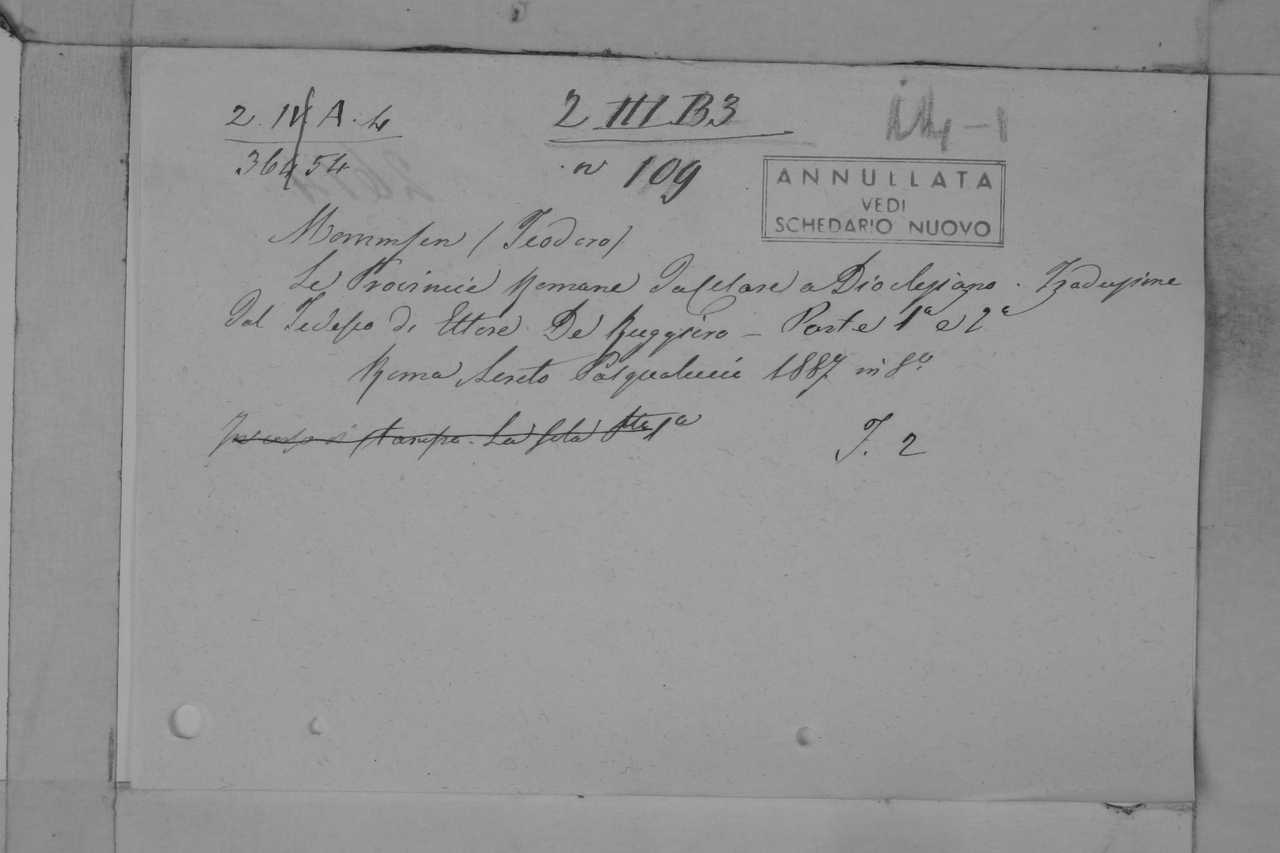 2. IV A. 4
36454
2 III B3
n 109
ANNULLATA
VEDI
SCHEDARIO NUOVO
Mommsen (Teodoro)
Le Provincie Romane da Cesare a Diocleziano. Traduzione
dal Tedesco di Ettore De Ruggiero - Parte 1ª e 2ª
Roma Loreto Pasqualucci 1887 in 8º
In corso di stampa. La sola 1ª
T. 2